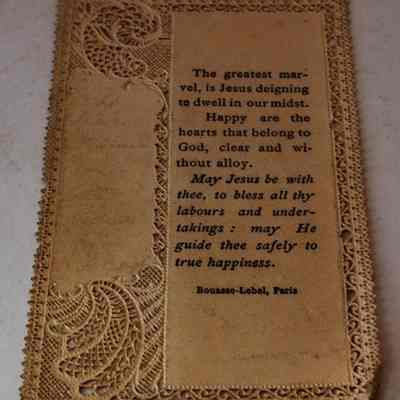 The greatest mar-
vel, is Jesus deigning
to dwell in our midst.
Happy are the
hearts that belong to
God, clear and wi-
thout alloy.
May Jesus be with
thee, to bless all thy
labours and under-
takings : may He
guide thee safely to
true happiness.
Bouasse-Lebel, Paris